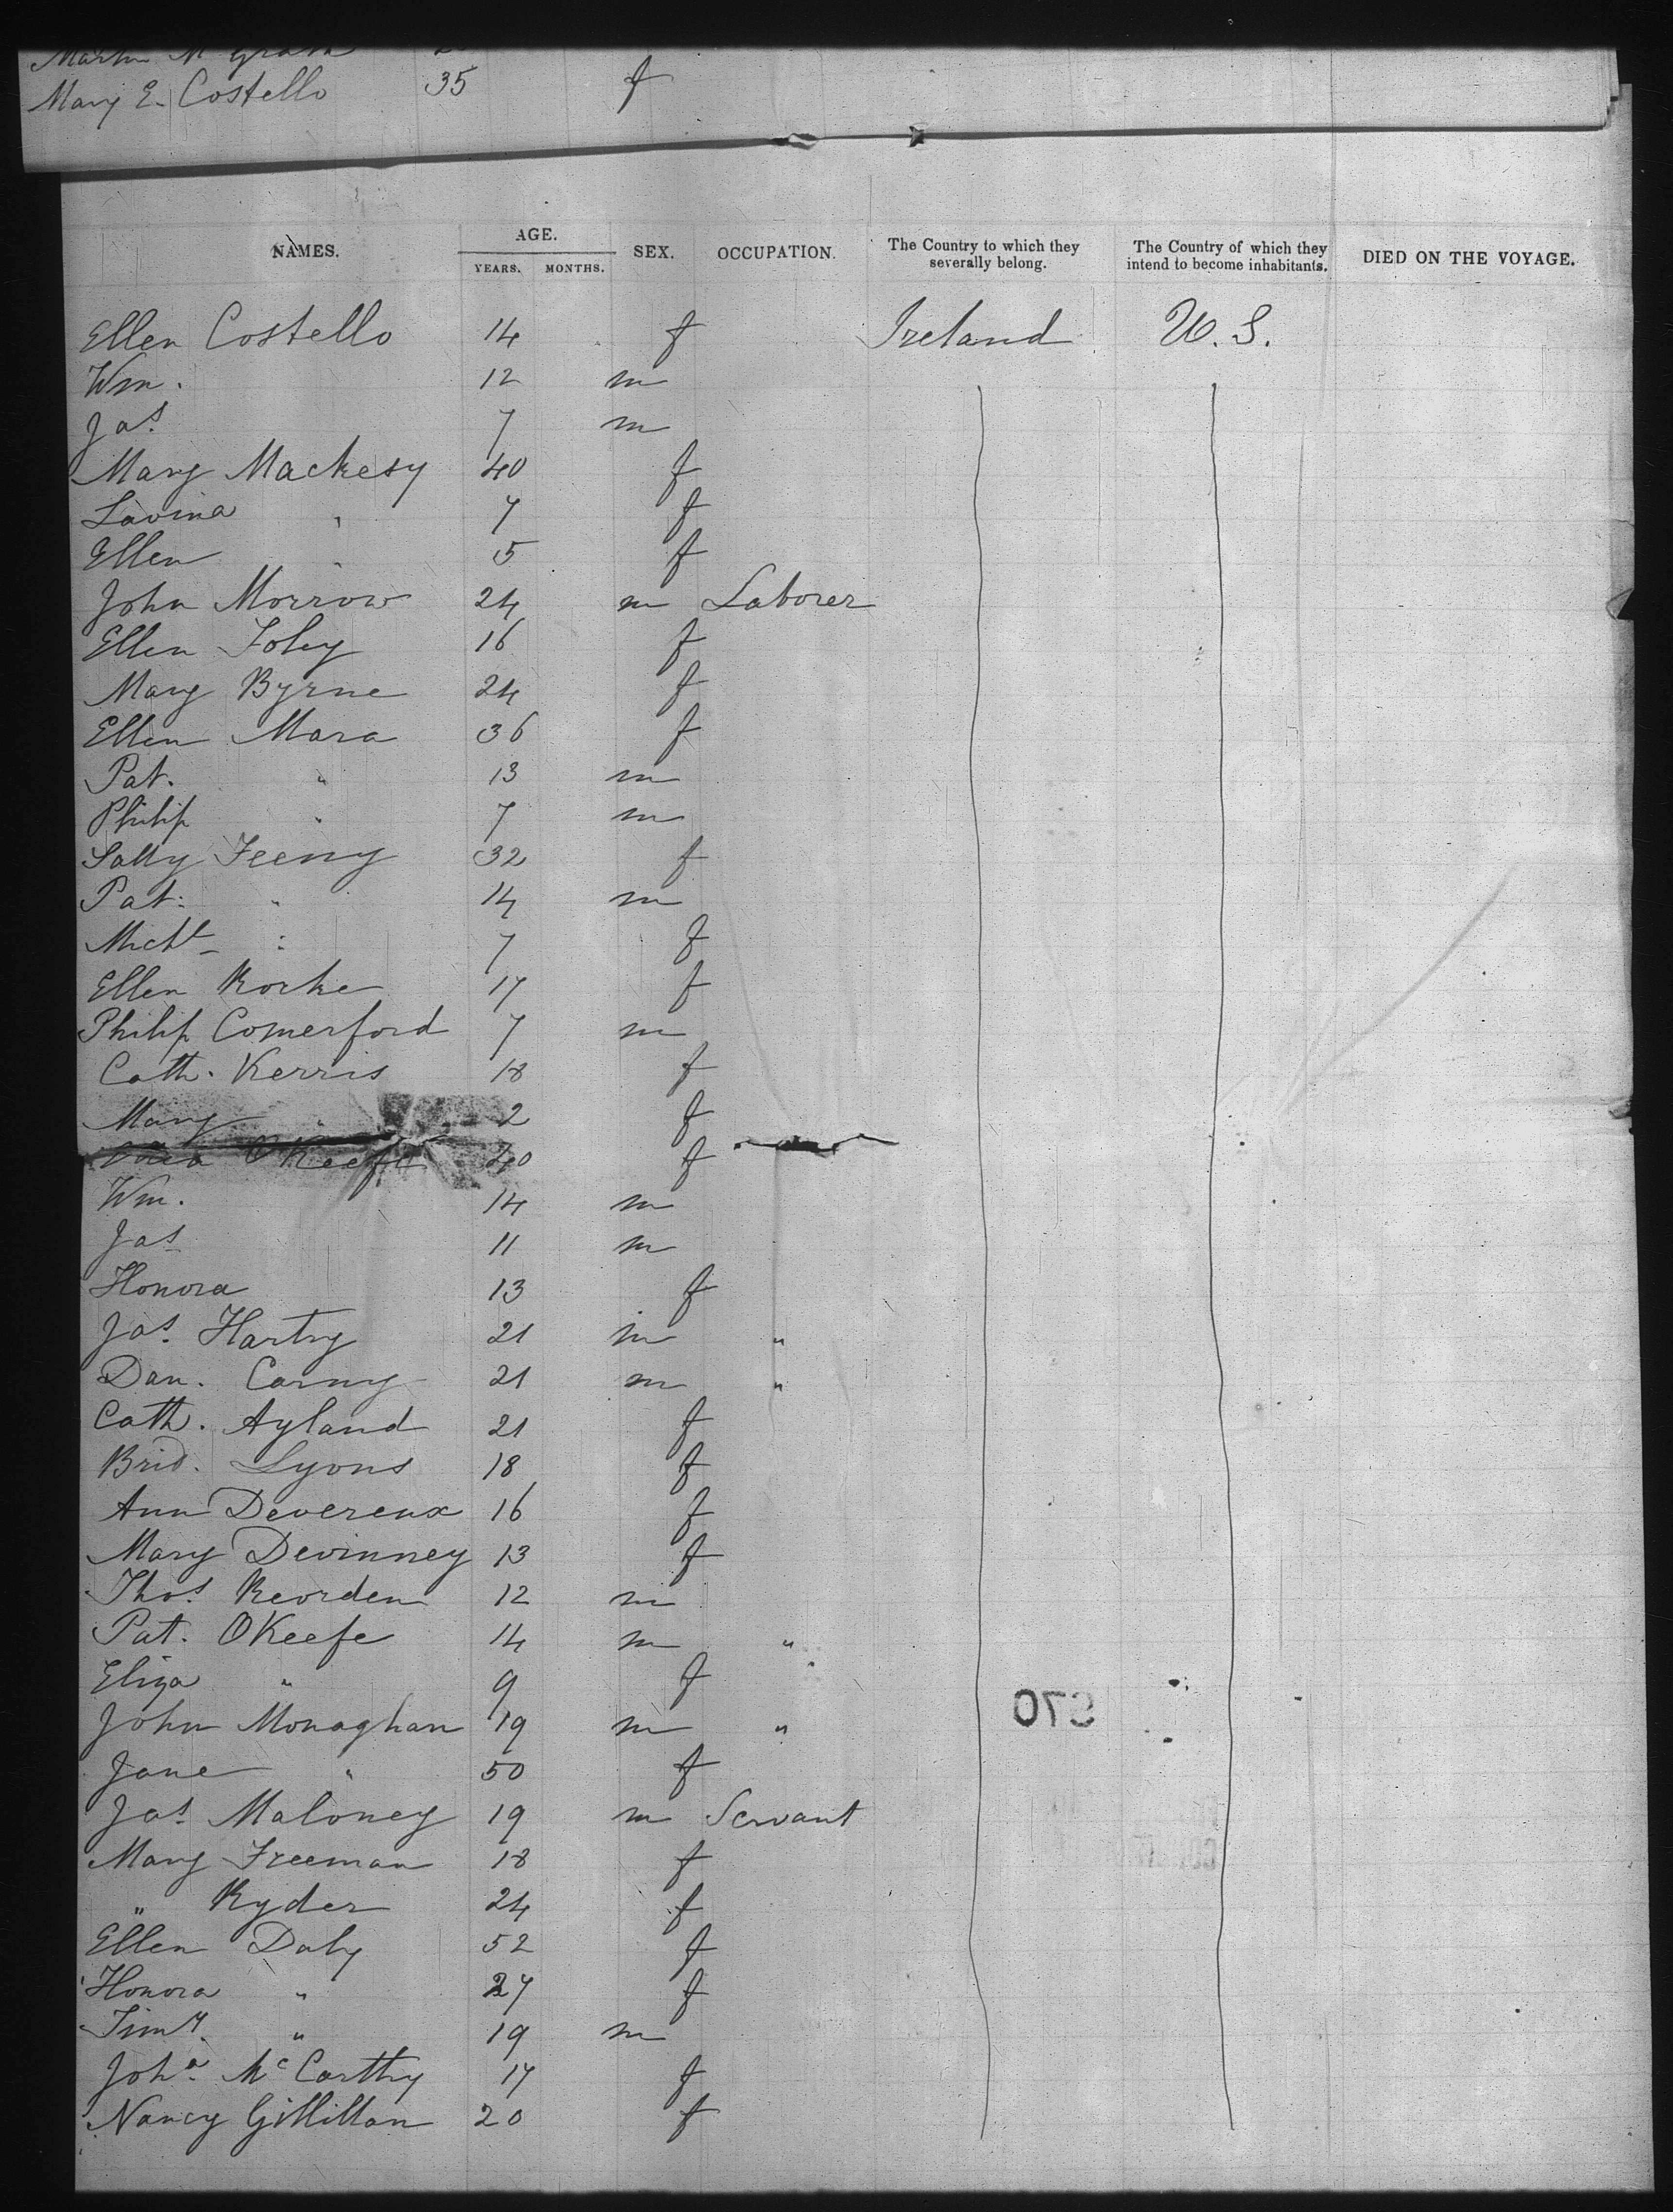 Mary E. Costello 35 f
NAMES. AGE. YEARS. MONTHS. SEX. OCCUPATION. The Country to which they severally belong. The Country of which they intend to become inhabitants. DIED ON THE VOYAGE.
Ellen Costello 14 f Ireland U.S.
Wm. 12 m
Jas. 7 m
Mary Mackesy 40 f
Lavina " 7 f
Ellen " 5 f
John Morrow 24 m Laborer
Ellen Foley 16 f
Mary Byrne 24 f
Ellen Mara 36 f
Pat. " 13 m
Philip " 7 m
Sally Feeny 32 f
Pat: " 14 m
Michl " 7 f
Ellen Rorke 17 f
Philip Comerford 7 m
Cath. Kerris 18 f
Mary " 2 f
OKeefe 40 f
Wm. 14 m
Jas 11 m
Honora 13 f
Jas. Hartry 21 m "
Dan. Carny 21 m "
Cath. Ayland 21 f
Brid. Lyons 18 f
Ann Devereux 16 f
Mary Devinney 13 f
Thos. Reorden 12 m
Pat. OKeefe 14 m "
Eliza " 9 f
John Monaghan 19 m "
Jane " 50 f
Jas. Maloney 19 m Servant
Mary Freeman 18 f
" Ryder 24 f
Ellen Daly 52 f
Honora " 27 f
Timy. " 19 m
Joha. McCarthy 17 f
Nancy Gillillan 20 f